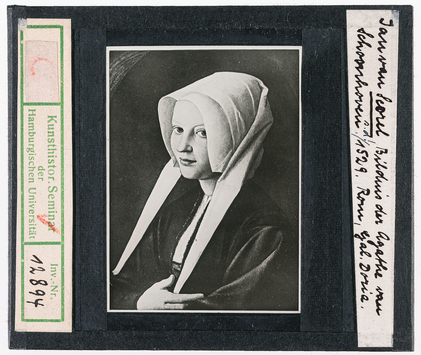 C
Kunsthistor. Seminar
der
Hamburgischen Universität
Inv.-Nr.
12894
Jan van Scorel Bildnis der Agathe van
Schoonhoven /1529. Rom, Gal. Doria.